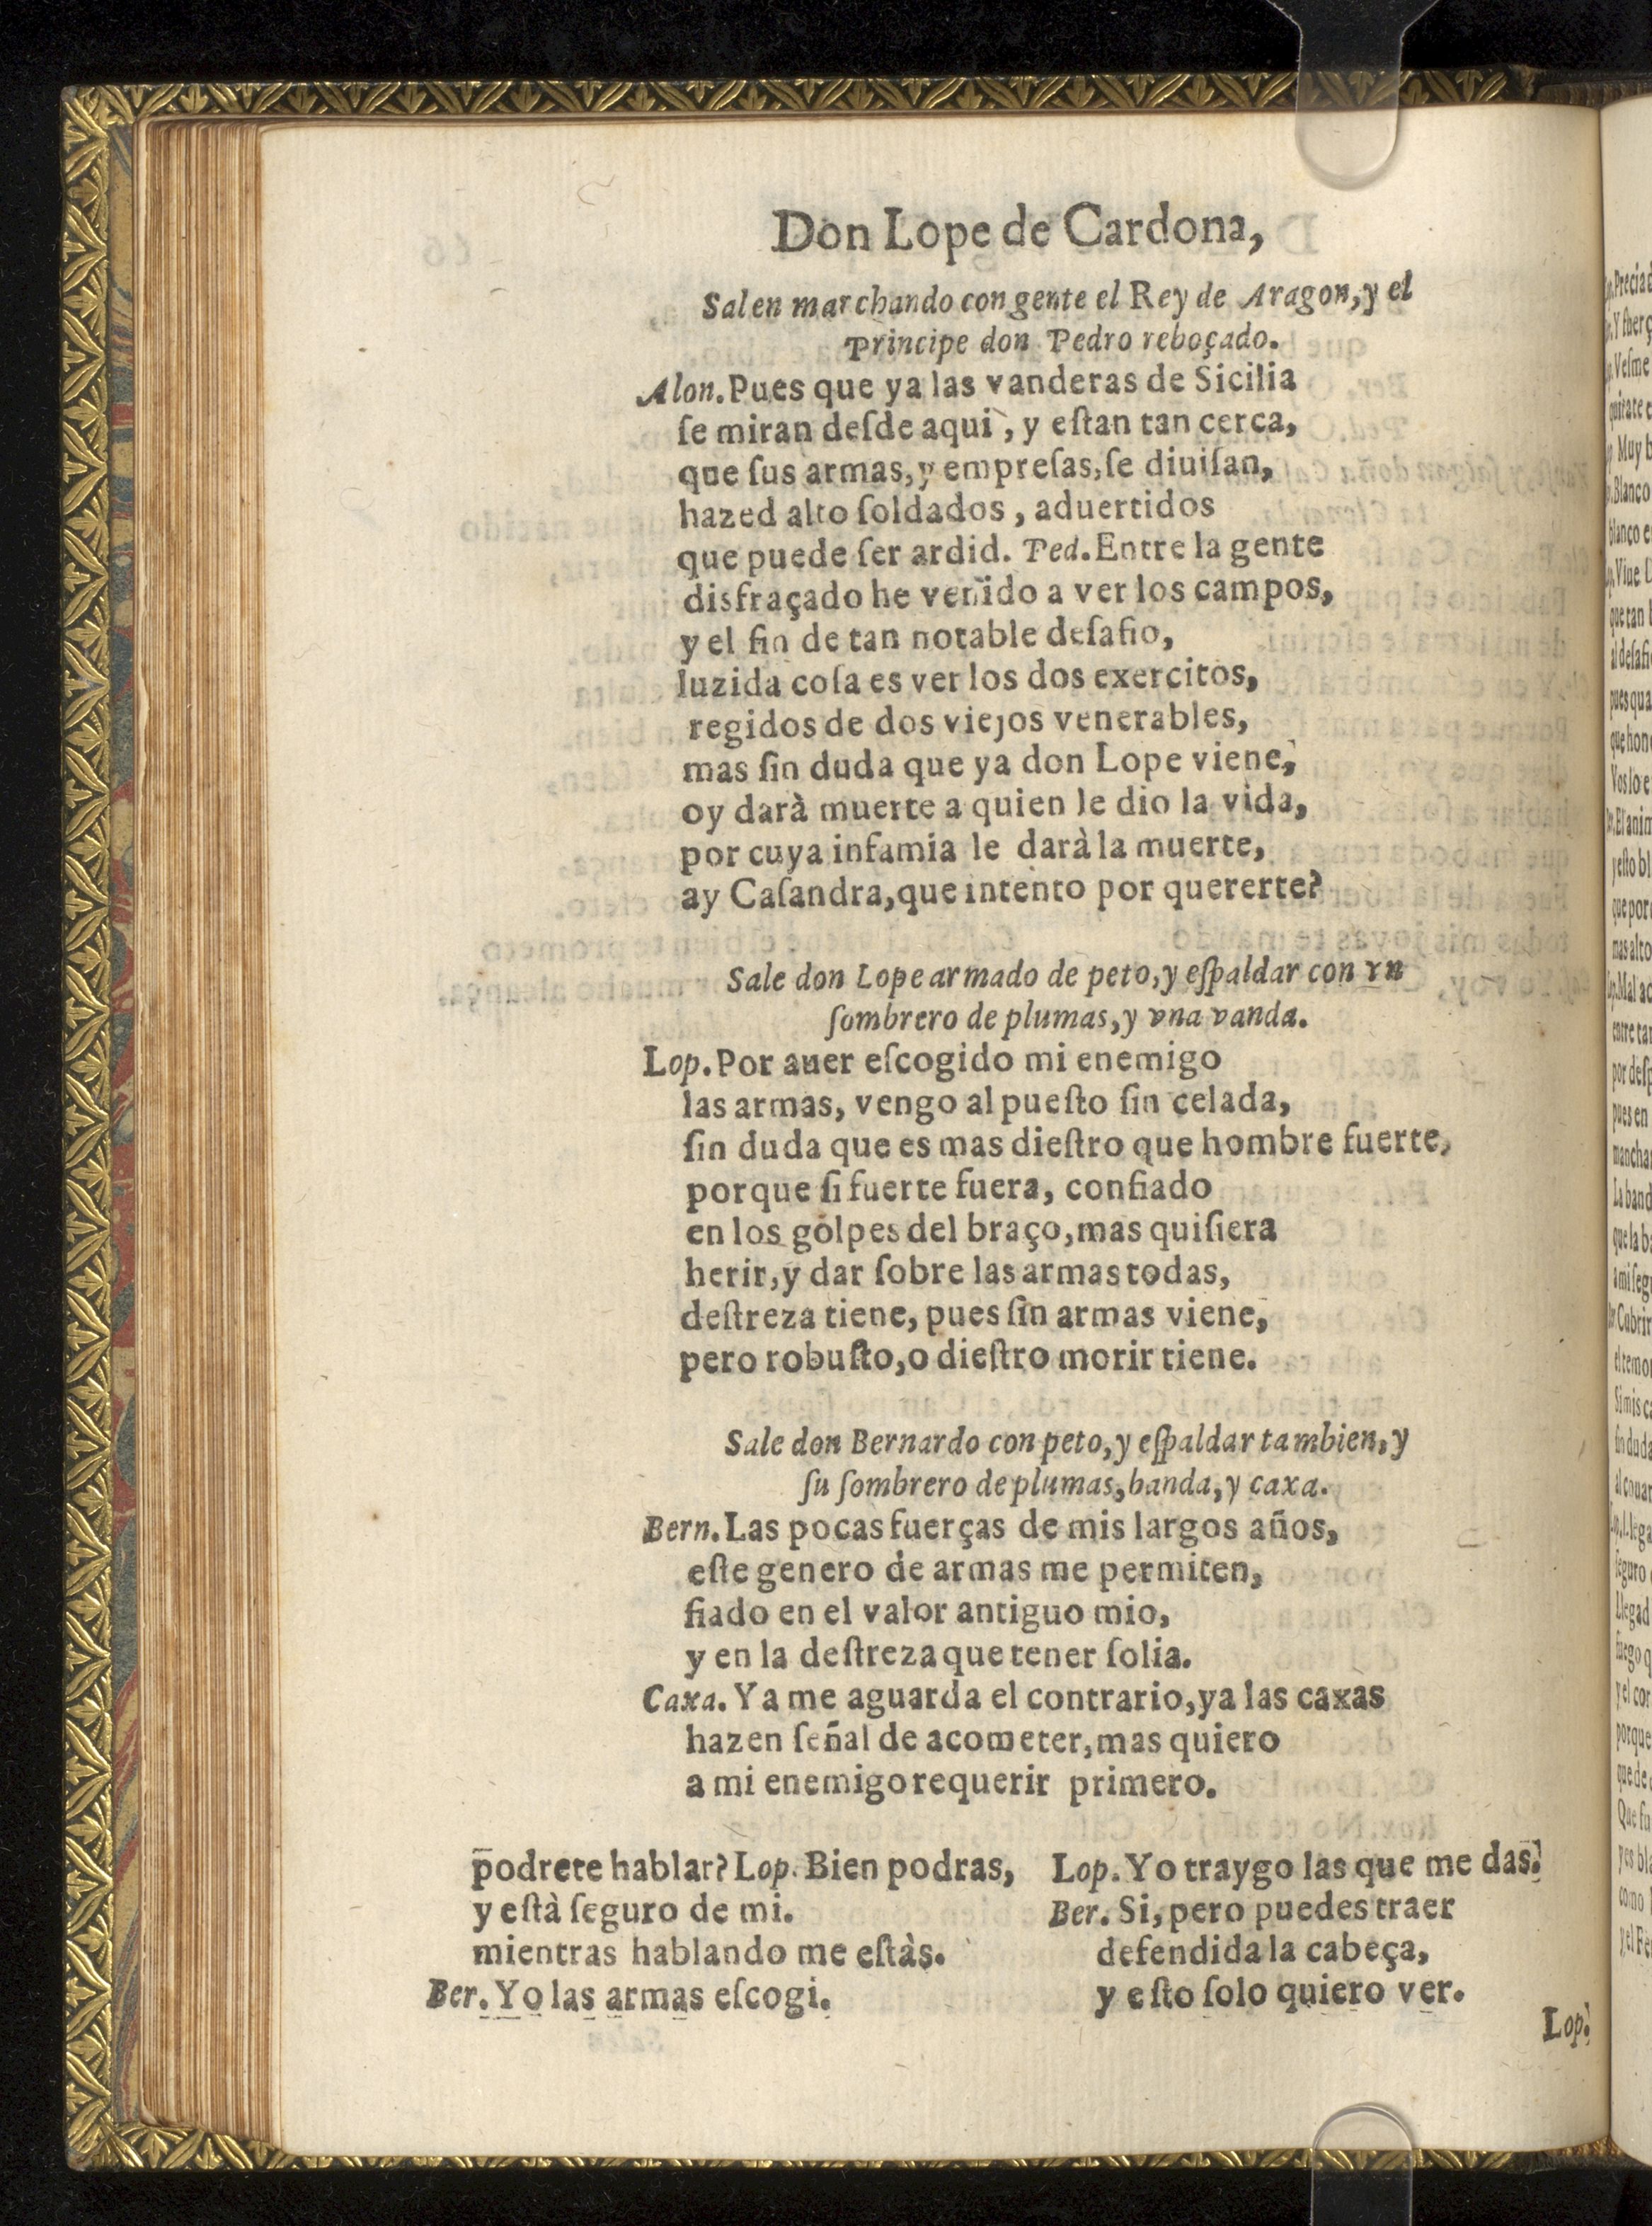 Don Lope de Cardona,
Salen marchando con gente el Rey de Aragon, y el
Principe don Pedro reboçado.
Alon. Pues que ya las vanderas de Sicilia
ſe miran deſde aqui, y eſtan tan cerca,
que ſus armas, y empreſas, ſe diuiſan,
hazed alto ſoldados, aduertidos
que puede ſer ardid. Ped. Entre la gente
disfraçado he venido a ver los campos,
y el fin de tan notable deſafio,
luzida coſa es ver los dos exercitos,
regidos de dos viejos venerables,
mas ſin duda que ya don Lope viene,
oy darà muerte a quien le dio la vida,
por cuya infamia le darà la muerte,
ay Caſandra, que intento por quererte?
Sale don Lope armado de peto, y eſpaldar con vn
ſombrero de plumas, y vna vanda.
Lop. Por auer eſcogido mi enemigo
las armas, vengo al pueſto ſin celada,
ſin duda que es mas dieſtro que hombre fuerte,
porque ſi fuerte fuera, confiado
en los golpes del braço, mas quiſiera
herir, y dar ſobre las armas todas,
deſtreza tiene, pues ſin armas viene,
pero robuſto, o dieſtro morir tiene.
Sale don Bernardo con peto, y eſpaldar tambien, y
ſu ſombrero de plumas, banda, y caxa.
Bern. Las pocas fuerças de mis largos años,
eſte genero de armas me permiten,
fiado en el valor antiguo mio,
y en la deſtreza que tener ſolia.
Caxa. Ya me aguarda el contrario, ya las caxas
hazen ſeñal de acometer, mas quiero
a mi enemigo requerir primero.
podrete hablar? Lop. Bien podras,
y eſtà ſeguro de mi.
mientras hablando me eſtàs.
Ber. Yo las armas eſcogi.
Lop. Yo traygo las que me das.
Ber. Si, pero puedes traer
defendida la cabeça,
y eſto ſolo quiero ver.
Lop.